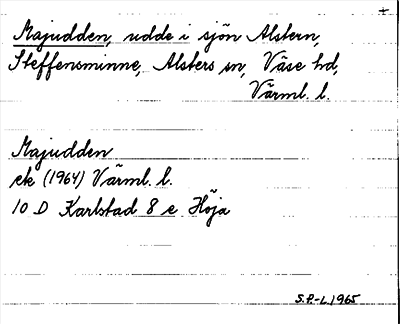 +
Majudden, udde i sjön Alstern,
Steffensminne, Alsters sn, Väse hd,
Värml. l.
Majudden
ek (1964) Värml. l.
10 D Karlstad 8 e Höja
S.P.-L. 1965